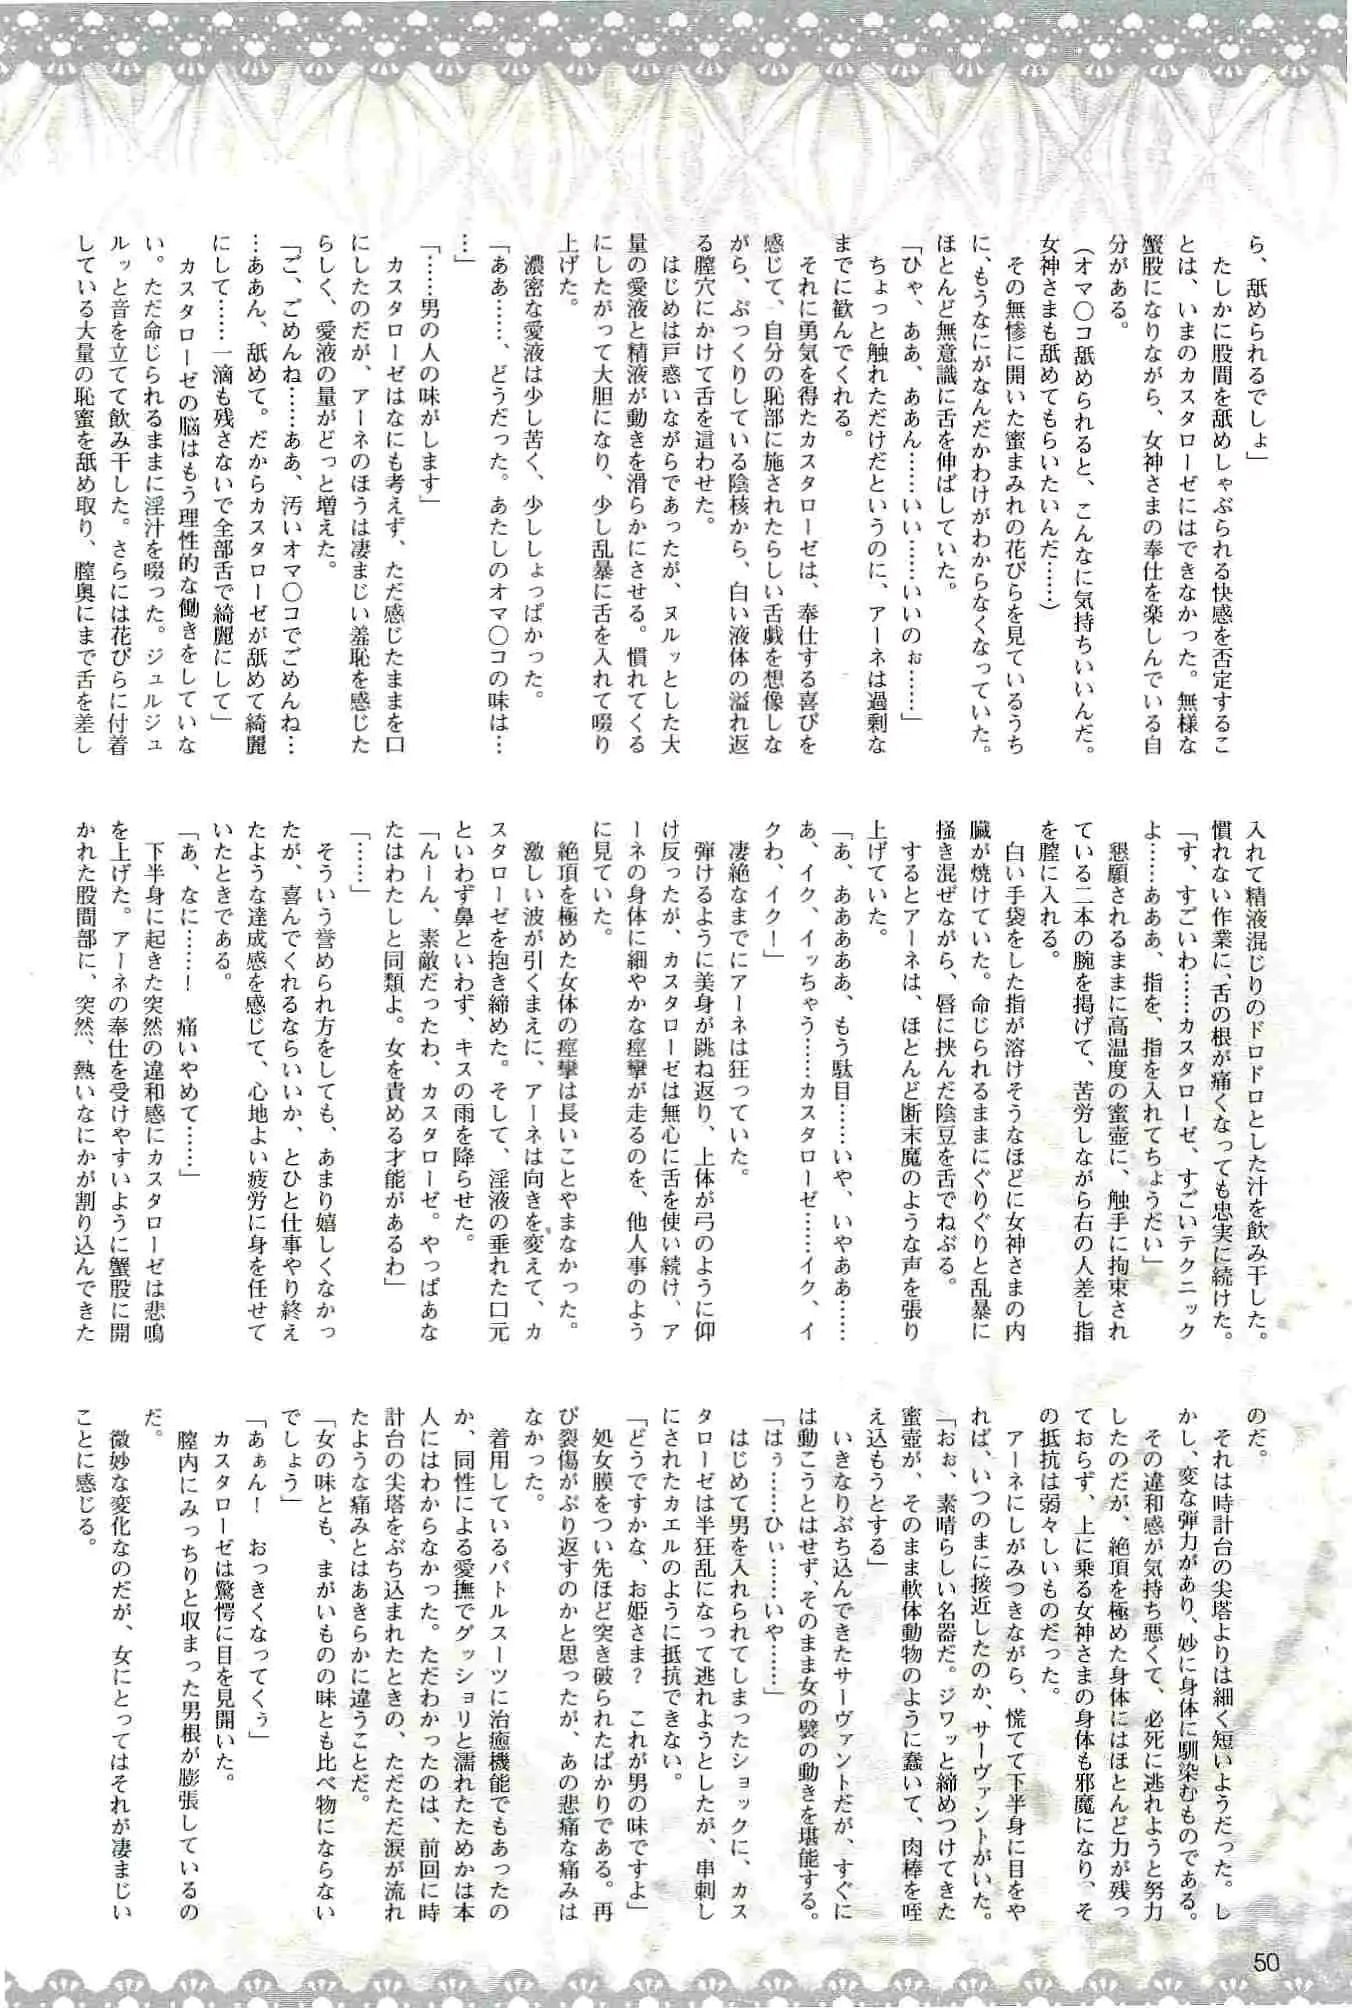 ら、舐められるでしょ」
　たしかに股間を舐めしゃぶられる快感を否定するこ
とは、いまのカスタローゼにはできなかった。無様な
蟹股になりながら、女神さまの奉仕を楽しんでいる自
分がある。
（オマ〇コ舐められると、こんなに気持ちいいんだ。
女神さまも舐めてもらいたいんだ……）
　その無惨に開いた蜜まみれの花びらを見ているうち
に、もうなにがなんだかわけがわからなくなっていた。
ほとんど無意識に舌を伸ばしていた。
「ひゃ、ああ、ああん……いい……いいのぉ……」
　ちょっと触れただけだというのに、アーネは過剰な
までに歓んでくれる。
　それに勇気を得たカスタローゼは、奉仕する喜びを
感じて、自分の恥部に施されたらしい舌戯を想像しな
がら、ぷっくりしている陰核から、白い液体の溢れ返
る膣穴にかけて舌を這わせた。
　はじめは戸惑いながらであったが、ヌルッとした大
量の愛液と精液が動きを滑らかにさせる。慣れてくる
にしたがって大胆になり、少し乱暴に舌を入れて啜り
上げた。
　濃密な愛液は少し苦く、少ししょっぱかった。
「ああ……、どうだった。あたしのオマ〇コの味は…
…」
「……男の人の味がします」
　カスタローゼはなにも考えず、ただ感じたままを口
にしたのだが、アーネのほうは凄まじい羞恥を感じた
らしく、愛液の量がどっと増えた。
「ご、ごめんね……ああ、汚いオマ〇コでごめんね…
…ああん、舐めて。だからカスタローゼが舐めて綺麗
にして……一滴も残さないで全部舌で綺麗にして」
　カスタローゼの脳はもう理性的な働きをしていな
い。ただ命じられるままに淫汁を啜った。ジュルジュ
ルッと音を立てて飲み干した。さらには花びらに付着
している大量の恥蜜を舐め取り、膣奥にまで舌を差し
入れて精液混じりのドロドロとした汁を飲み干した。
慣れない作業に、舌の根が痛くなっても忠実に続けた。
「す、すごいわ……カスタローゼ、すごいテクニック
よ……あああ、指を、指を入れてちょうだい」
　懇願されるままに高温度の蜜壺に、触手に拘束され
ている二本の腕を掲げて、苦労しながら右の人差し指
を膣に入れる。
　白い手袋をした指が溶けそうなほどに女神さまの内
臓が焼けていた。命じられるままにぐりぐりと乱暴に
掻き混ぜながら、唇に挟んだ陰豆を舌でねぶる。
　するとアーネは、ほとんど断末魔のような声を張り
上げていた。
「あ、あああああ、もう駄目……いや、いやああ……
あ、イク、イッちゃう……カスタローゼ……イク、イ
クわ、イク！」
　凄絶なまでにアーネは狂っていた。
　弾けるように美身が跳ね返り、上体が弓のように仰
け反ったが、カスタローゼは無心に舌を使い続け、ア
ーネの身体に細やかな痙攣が走るのを、他人事のよう
に見ていた。
　絶頂を極めた女体の痙攣は長いことやまなかった。
　激しい波が引くまえに、アーネは向きを変えて、カ
スタローゼを抱き締めた。そして、淫液の垂れた口元
といわず鼻といわず、キスの雨を降らせた。
「んーん、素敵だったわ、カスタローゼ。やっぱあな
たはわたしと同類よ。女を責める才能があるわ」
「……」
　そういう誉められ方をしても、あまり嬉しくなかっ
たが、喜んでくれるならいいか、とひと仕事やり終え
たような達成感を感じて、心地よい疲労に身を任せて
いたときである。
「あ、なに……！　痛いやめて……」
　下半身に起きた突然の違和感にカスタローゼは悲鳴
を上げた。アーネの奉仕を受けやすいように蟹股に開
かれた股間部に、突然、熱いなにかが割り込んできた
のだ。
　それは時計台の尖塔よりは細く短いようだった。し
かし、変な弾力があり、妙に身体に馴染むものである。
　その違和感が気持ち悪くて、必死に逃れようと努力
したのだが、絶頂を極めた身体にはほとんど力が残っ
ておらず、上に乗る女神さまの身体も邪魔になり、そ
の抵抗は弱々しいものだった。
　アーネにしがみつきながら、慌てて下半身に目をや
れば、いつのまに接近したのか、サーヴァントがいた。
「おぉ、素晴らしい名器だ。ジワッと締めつけてきた
蜜壺が、そのまま軟体動物のように蠢いて、肉棒を咥
え込もうとする」
　いきなりぶち込んできたサーヴァントだが、すぐに
は動こうとはせず、そのまま女の襞の動きを堪能する。
「はぅ……ひぃ……いや……」
　はじめて男を入れられてしまったショックに、カス
タローゼは半狂乱になって逃れようとしたが、串刺し
にされたカエルのように抵抗できない。
「どうですかな、お姫さま？　これが男の味ですよ」
　処女膜をつい先ほど突き破られたばかりである。再
び裂傷がぶり返すのかと思ったが、あの悲痛な痛みは
なかった。
　着用しているバトルスーツに治癒機能でもあったの
か、同性による愛撫でグッショリと濡れたためかは本
人にはわからなかった。ただわかったのは、前回に時
計台の尖塔をぶち込まれたときの、ただただ涙が流れ
たような痛みとはあきらかに違うことだ。
「女の味とも、まがいものの味とも比べ物にならない
でしょう」
「あぁん！　おっきくなってくぅ」
　カスタローゼは驚愕に目を見開いた。
　膣内にみっちりと収まった男根が膨張しているの
だ。
　微妙な変化なのだが、女にとってはそれが凄まじい
ことに感じる。
50